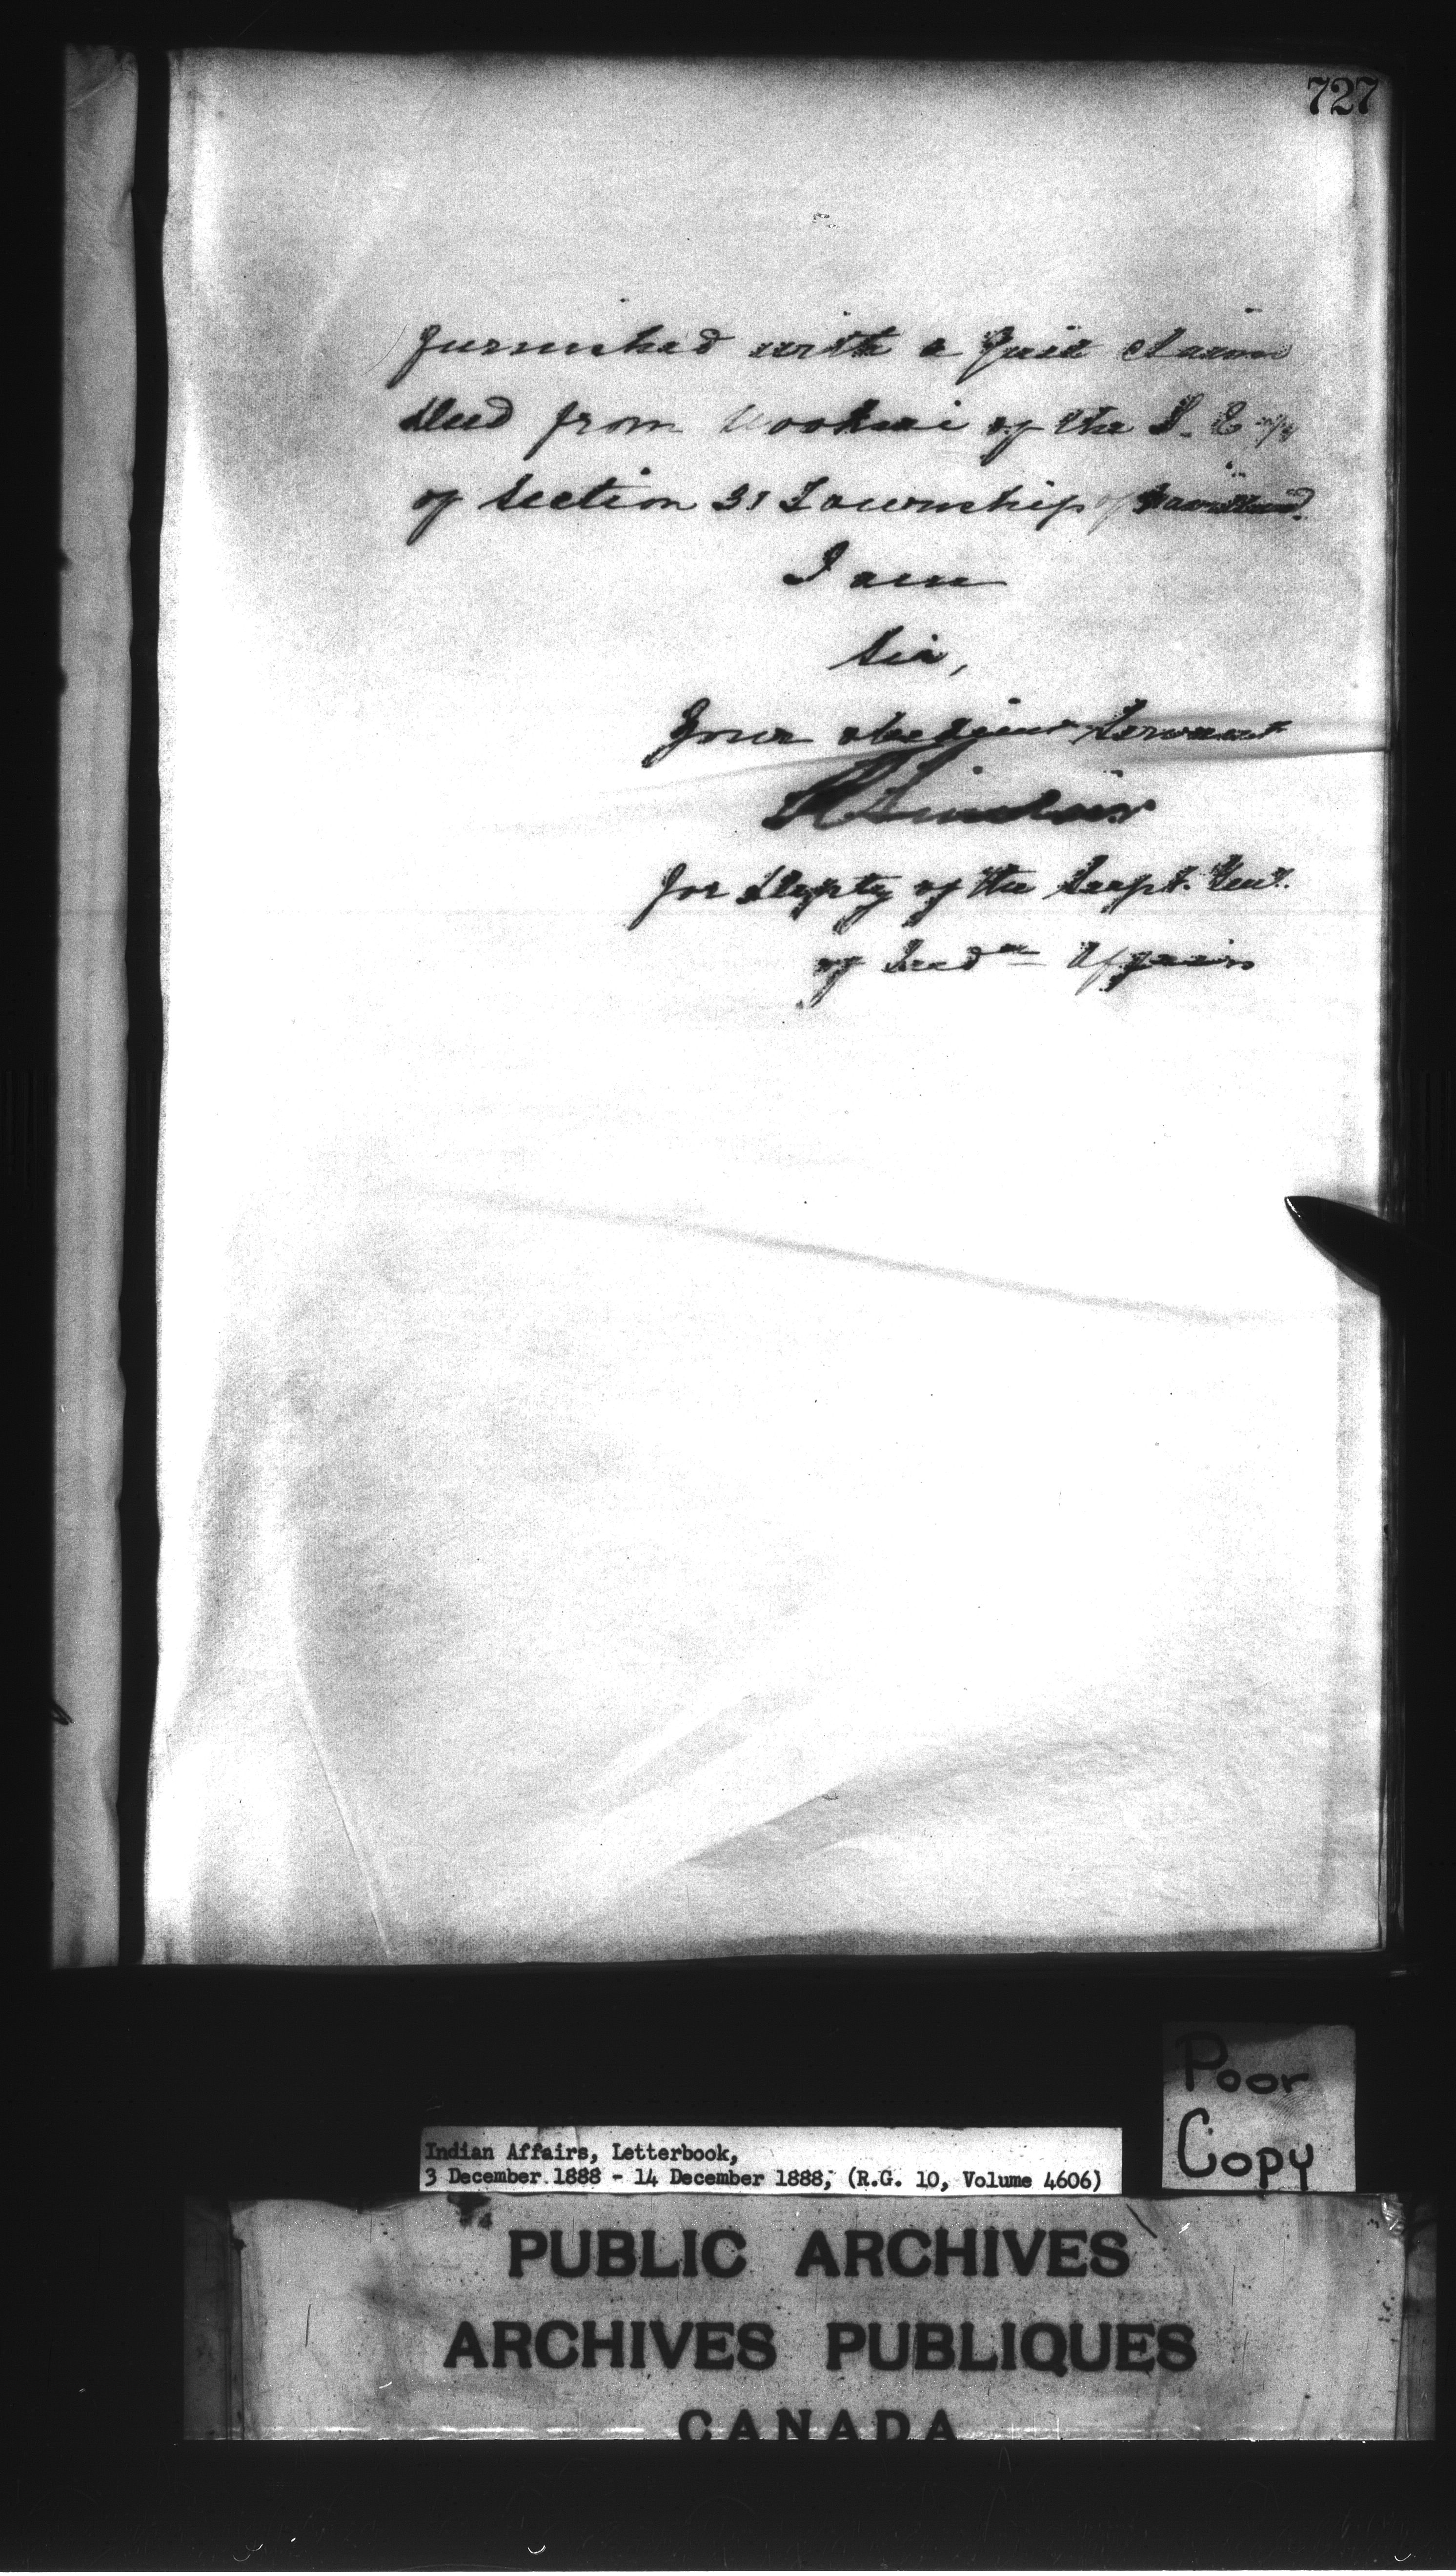 727
furnished with a Quit Claim
Deed from of the S. E ¼
of Section 31 Township of
I am
Sir,
Your obedient Servant
R Sinclair
for Depty of the Supt. Genl.
of Indn Affairs
Poor
Copy
Indian Affairs, Letterbook,
3 December 1888 - 14 December 1888, (R.G. 10, Volume 4606)
PUBLIC ARCHIVES
ARCHIVES PUBLIQUES
CANADA